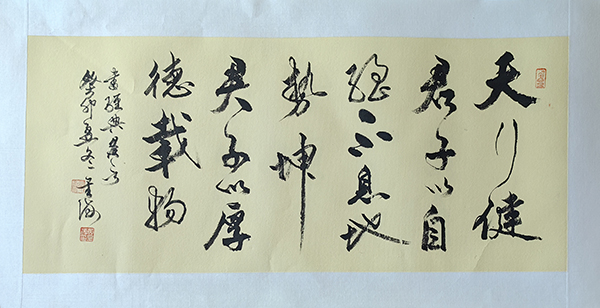 天行健
君子以自
强不息地
势坤
君子以厚
德载物
书经典君子句
癸卯孟冬